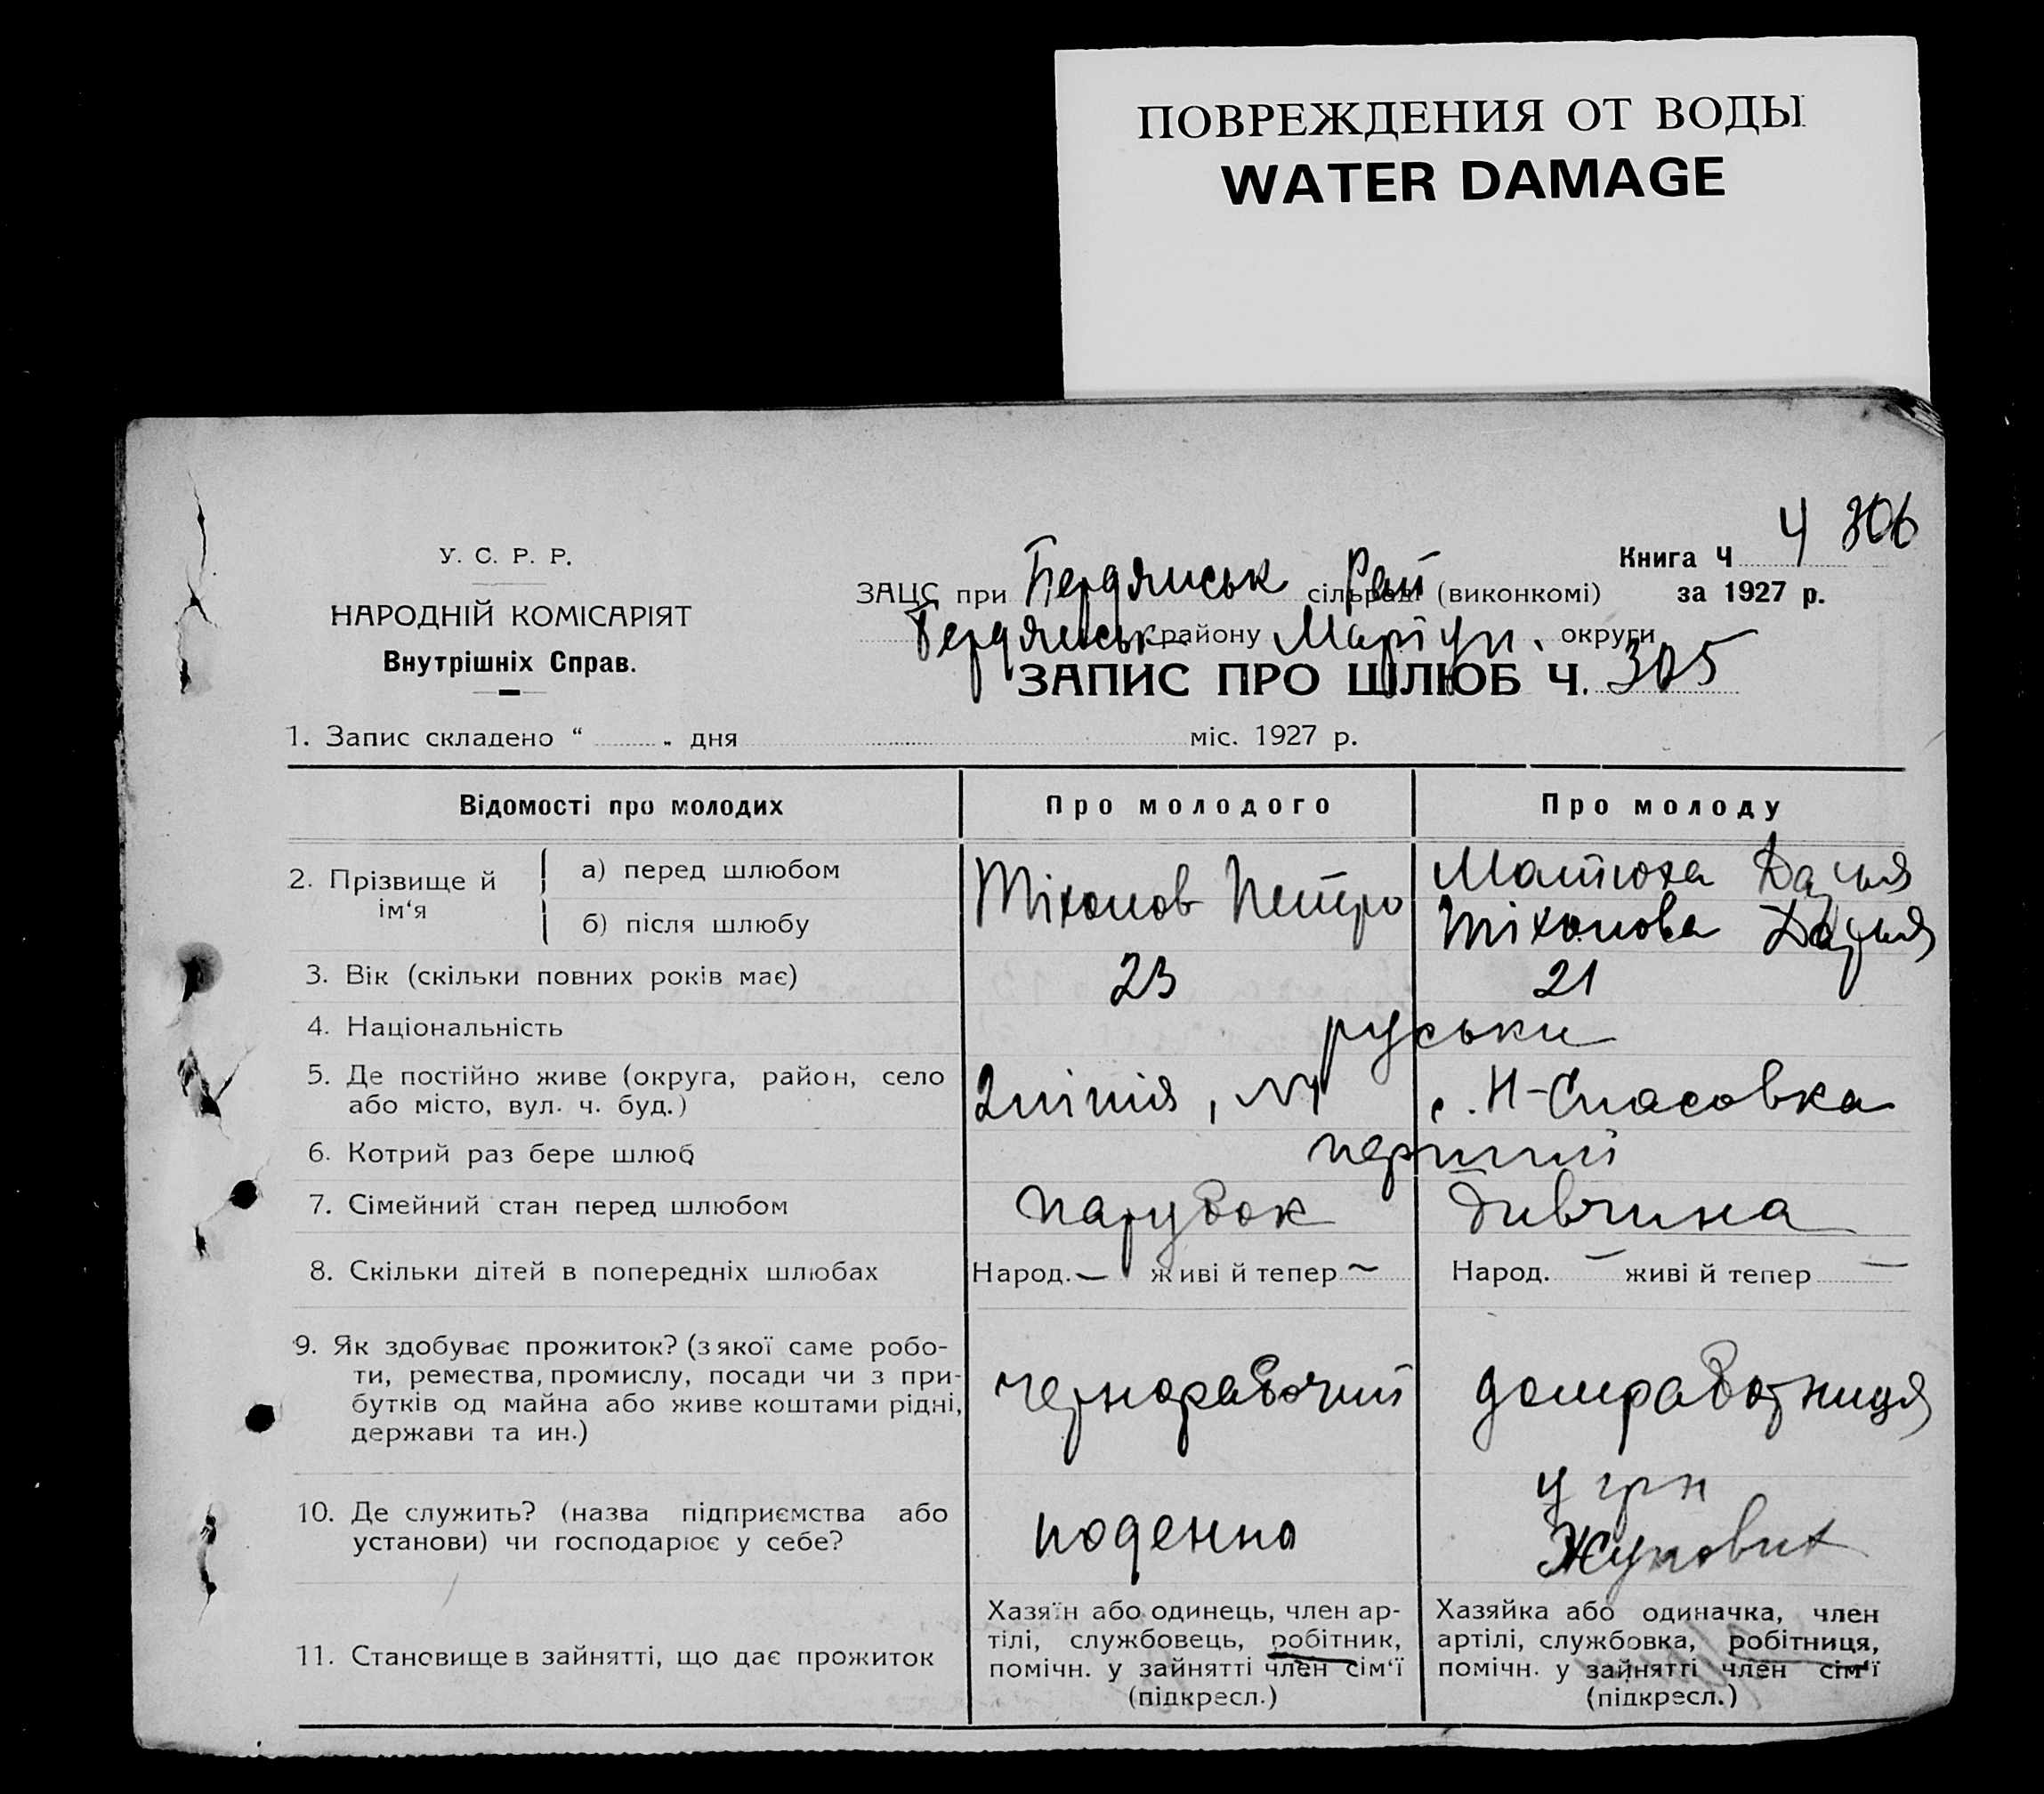 ПОВРЕЖДЕНИЯ ОТ ВОДЫ
WATER DAMAGE
Ч 306
У. С. Р. Р.
НАРОДНІЙ КОМІСАРІЯТ
Внутрішніх Справ.
Книга Ч
за 1927 р.
ЗАЦС при Бердянськ сільраді Рай (виконкомі)
Бердянськ району Маріуп. округи
ЗАПИС ПРО ШЛЮБ Ч. 305
1. Запис складено “ „ дня міс. 1927 р.
Відомості про молодих Про молодого Про молоду
2. Прізвище й ім‘я
а) перед шлюбом Тіхонов Петро Матюха Дарья
б) після шлюбу Тіхонова Дарья
3. Вік (скільки повних років має) 23 21
4. Національність руськи
5. Де постійно живе (округа, район, село
або місто, вул. ч. буд.) 2 лінія, с. Н-Спасовка
6. Котрий раз бере шлюб перший
7. Сімейний стан перед шлюбом парубок дивчина
8. Скільки дітей в попередніх шлюбах Народ. — живі й тепер — Народ. — живі й тепер —
9. Як здобуває прожиток? (з якої саме робо-
ти, ремества, промислу, посади чи з при-
бутків од майна або живе коштами рідні,
держави та ин.)
чернорабочий домработниця
10. Де служить? (назва підприємства або
установи) чи господарює у себе?
поденно у грн
11. Становище в зайнятті, що дає прожиток
Хазяїн або одинець, член ар-
тілі, службовець, робітник,
помічн. у зайнятті член сім‘ї
(підкресл.)
Хазяйка або одиначка, член
артілі, службовка, робітниця,
помічн. у зайнятті член сім‘ї
(підкресл.)